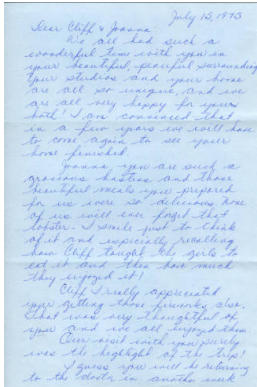 July 15, 1993
Dear Cliff & Joanna
We all had such a
wonderful time with you in
your beautiful, peaceful surroundings
Your studios and your home
are all so unique, and we
are all very happy for you
both! I am convinced that
in a few years we will have
to come again to see your
home finished.
Joanna you are such a
gracious hostess and those
beautiful meals you prepared
for us were so delicious. None
of us will ever forget that
lobster - I smile just to think
of it and especially recalling
how Cliff taught the girls to
eat it and then how much
they enjoyed it!
Cliff I really appreciated
your getting those fireworks, also.
That was very thoughtful of
you and we all enjoyed them
Our visit with you surely
was the highlight of the trip!
I guess you will be returning
to the doctor in another week